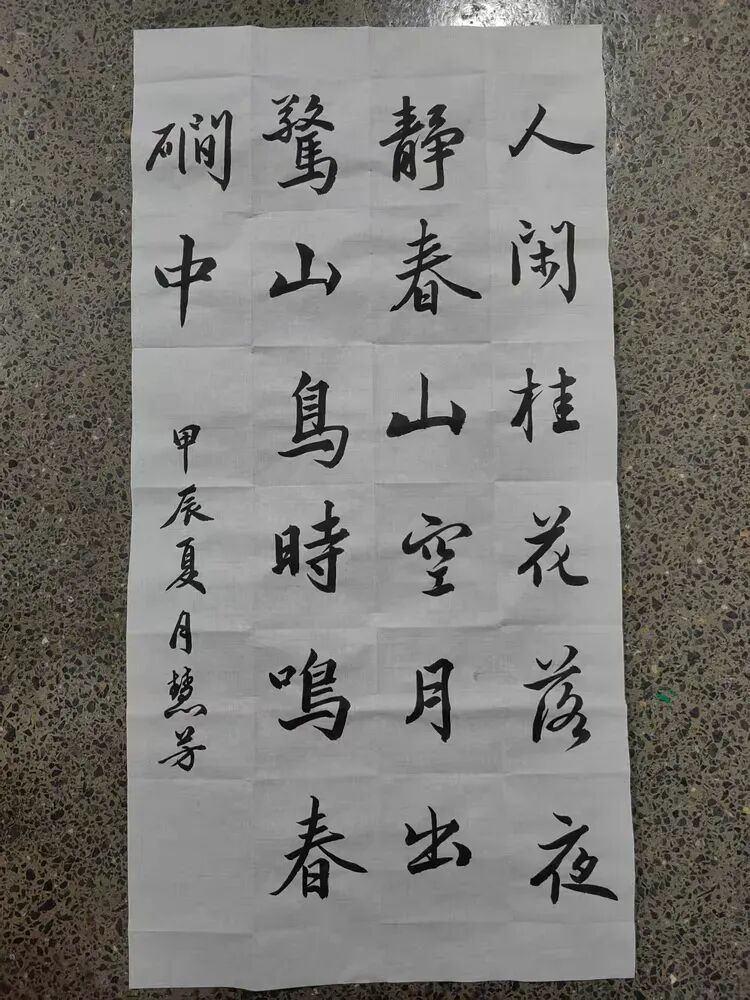 人閑桂花落夜
靜春山空月出
驚山鳥時鳴春
磵中
甲辰夏月慧芳